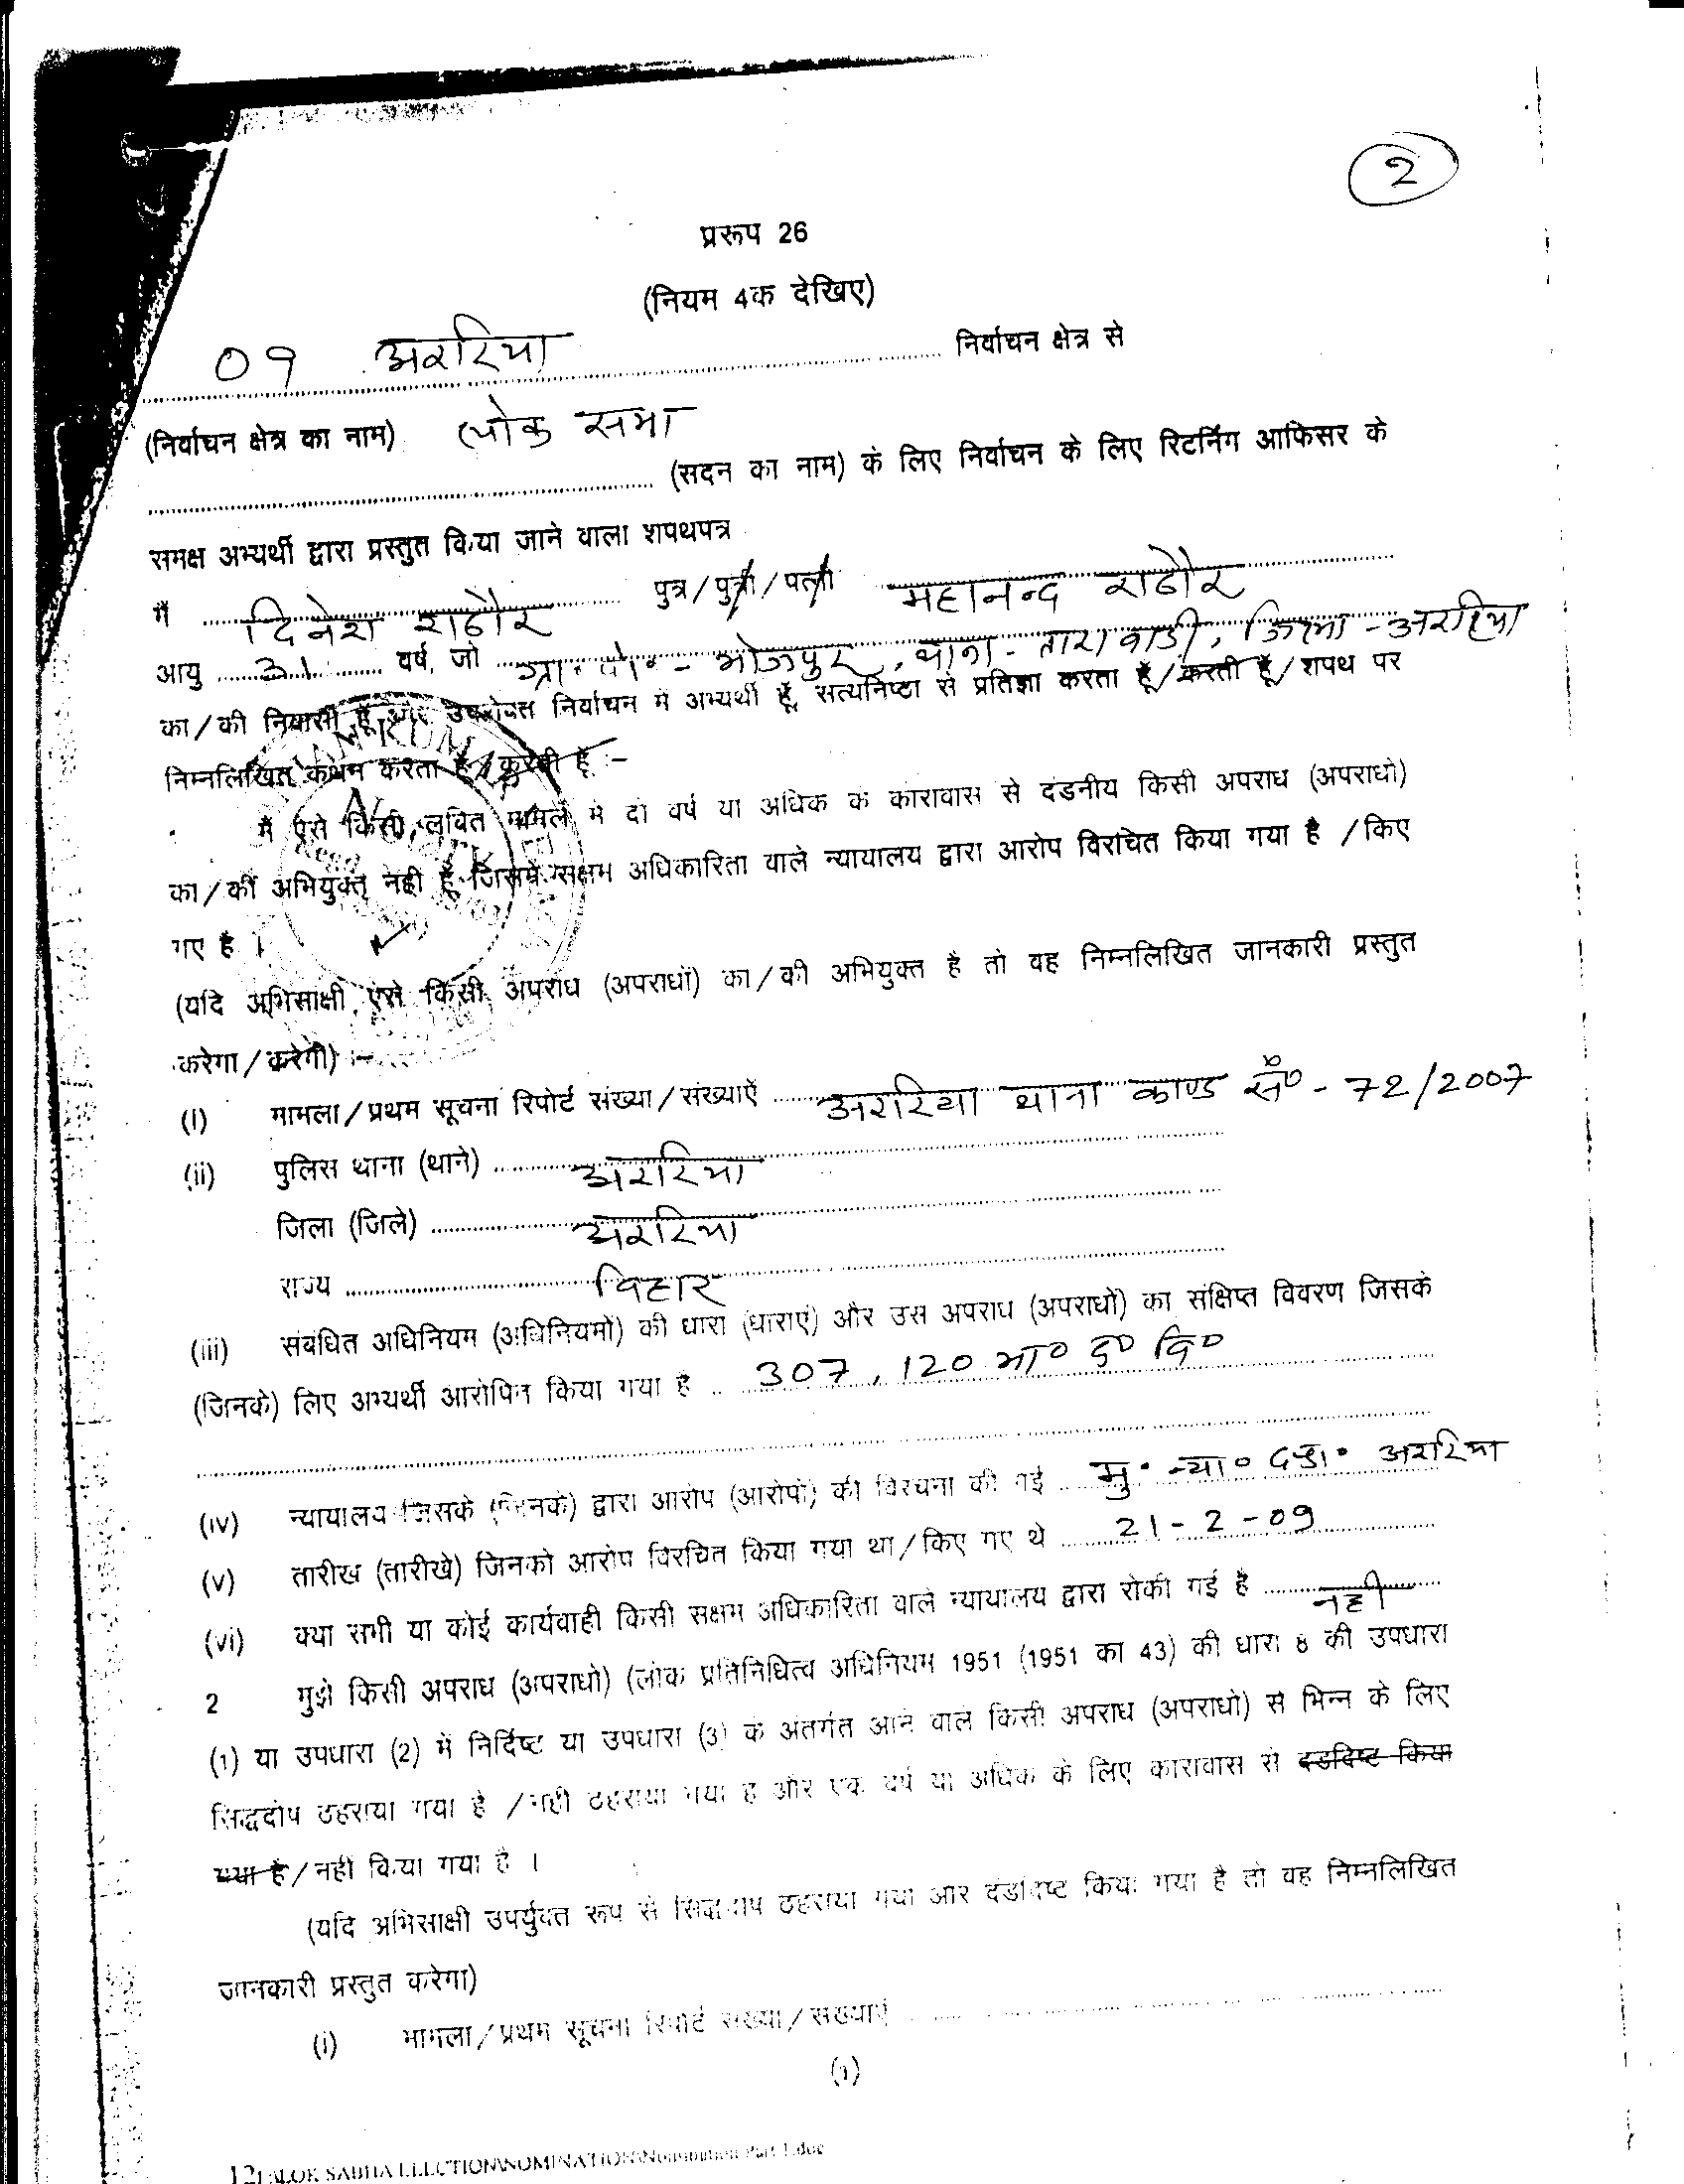 2
प्ररूप 26
(नियम 4क देखिए)
09 अररिया निर्वाचन क्षेत्र से
(निर्वाचन क्षेत्र का नाम) लोक सभा
(सदन का नाम) के लिए निर्वाचन के लिए रिटर्निंग आफिसर के
समक्ष अभ्यर्थी द्वारा प्रस्तुत किया जाने वाला शपथपत्र
मैं दिनेश राठौर पुत्र/पुत्री/पत्नी महानन्द राठौर
आयु 31 वर्ष, जो ग्रा॰ पो॰ - भोजपुर, थाना - ताराबाडी, जिला - अररिया
का/की निवासी हूँ और उपरोक्त निर्वाचन में अभ्यर्थी हूँ, सत्यनिष्ठा से प्रतिज्ञा करता हूँ/करती हूँ/शपथ पर
निम्नलिखित कथन करता हूँ/करती हूँ :-
मैं ऐसे किसी लंबित मामले में दो वर्ष या अधिक के कारावास से दंडनीय किसी अपराध (अपराधों)
का/की अभियुक्त नहीं हूँ जिसमें सक्षम अधिकारिता वाले न्यायालय द्वारा आरोप विरचित किया गया है /किए
गए है ।
(यदि अभिसाक्षी ऐसे किसी अपराध (अपराधों) का/की अभियुक्त है तो वह निम्नलिखित जानकारी प्रस्तुत
करेगा/करेगी) :-
(i) मामला/प्रथम सूचना रिपोर्ट संख्या/संख्याएँ अररिया थाना काण्ड सं० - 72/2007
(ii) पुलिस थाना (थाने) अररिया
जिला (जिले) अररिया
राज्य बिहार
(iii) संबंधित अधिनियम (अधिनियमों) की धारा (धाराएं) और उस अपराध (अपराधों) का संक्षिप्त विवरण जिसके
(जिनके) लिए अभ्यर्थी आरोपित किया गया है 307, 120 भा० द० वि०
(iv) न्यायालय जिसके (जिनके) द्वारा आरोप (आरोपों) की विरचना की गई मु॰ न्या॰ दण्डा॰ अररिया
(v) तारीख (तारीखे) जिनको आरोप विरचित किया गया था/किए गए थे 21-2-09
(vi) क्या सभी या कोई कार्यवाही किसी सक्षम अधिकारिता वाले न्यायालय द्वारा रोकी गई है नहीं
2 मुझे किसी अपराध (अपराधो) (लोक प्रतिनिधित्व अधिनियम 1951 (1951 का 43) की धारा 8 की उपधारा
(1) या उपधारा (2) में निर्दिष्ट या उपधारा (3) के अंतर्गत आने वाले किसी अपराध (अपराधो) से भिन्न के लिए
सिद्धदोष ठहराया गया है /नही ठहराया गया है और एक वर्ष या अधिक के लिए कारावास से दंडदिष्ट किया
गया है/नहीं किया गया है ।
(यदि अभिसाक्षी उपर्युक्त रूप से सिद्धदोष ठहराया गया और दंडादिष्ट किया गया है तो वह निम्नलिखित
जानकारी प्रस्तुत करेगा)
(i) मामला/प्रथम सूचना रिपोर्ट संख्या/संख्याएं
(1)
LOK SABHA ELECTION\NOMINATION\Nomination Part 1.doc